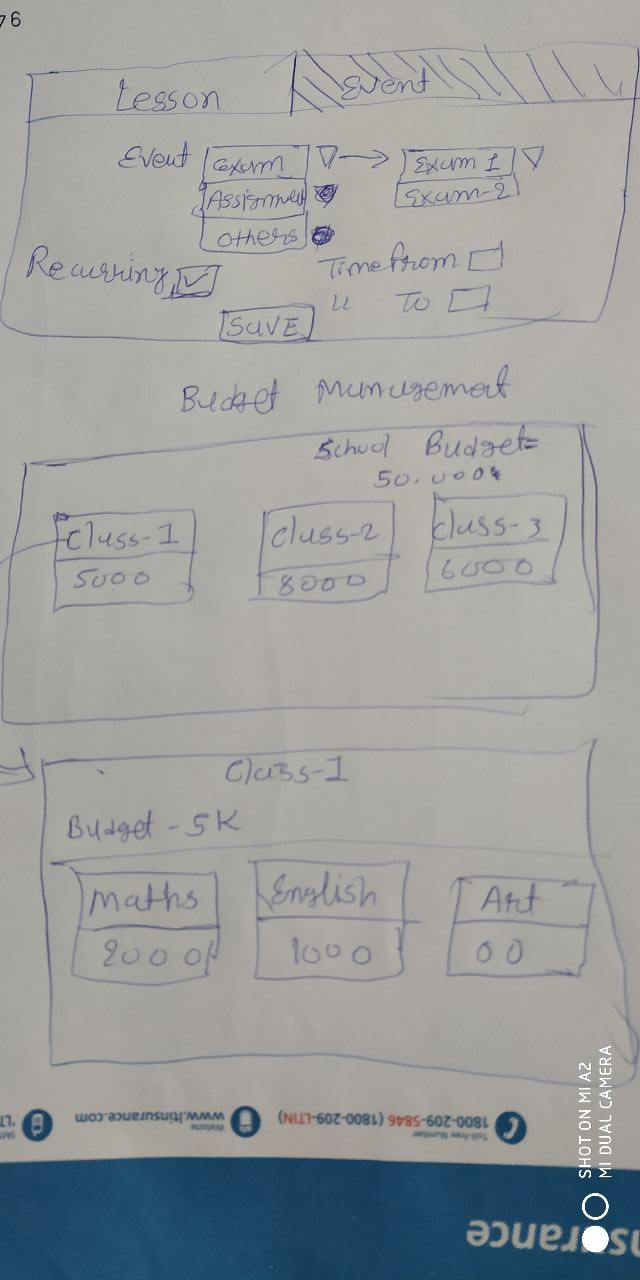 76
Lesson Event
Event Exam Exam 1
Assignment Exam-2
Others
Recurring Time from
" To
SAVE
Budget Management
School Budget=
50,000
Class-1 Class-2 Class-3
5000 8000 6000
Class-1
Budget - 5K
Maths English Art
2000 1000 00
Toll-free Number
1800-209-5846 (1800-209-LTIN)
Website
www.ltinsurance.com
SMS
'LT
nsurance
SHOT ON MI A2
MI DUAL CAMERA